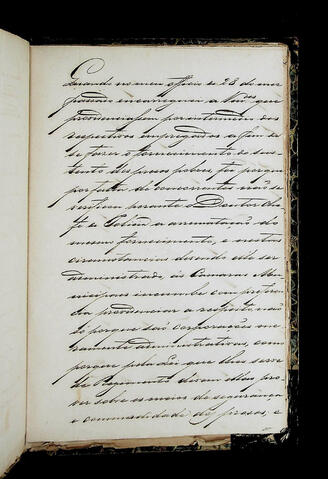 Quando no meu officio de 28 do mez
passado encarreguei a Vmces que
providenciassem por intermedio dos
respectivos empregados a fim de
se fazer o fornecimento do sus-
tento dos presos pobres, foi porque
por falta de concurrentes não se
verificou perante o Doutor Che-
fe de Policia a arrematação do
mesmo fornecimento, e nestas
circunstancias devendo elle ser
administrado, ás Camaras Mu-
nicipaes incumbe com preferen-
cia providenciar a respeito, não
só porque são corporações me-
ramente administrativas, como
porque pela Lei que lhes serve
de Regimento devem ellas pro-
ver sobre os meios de segurança
e commodidade dos presos, e